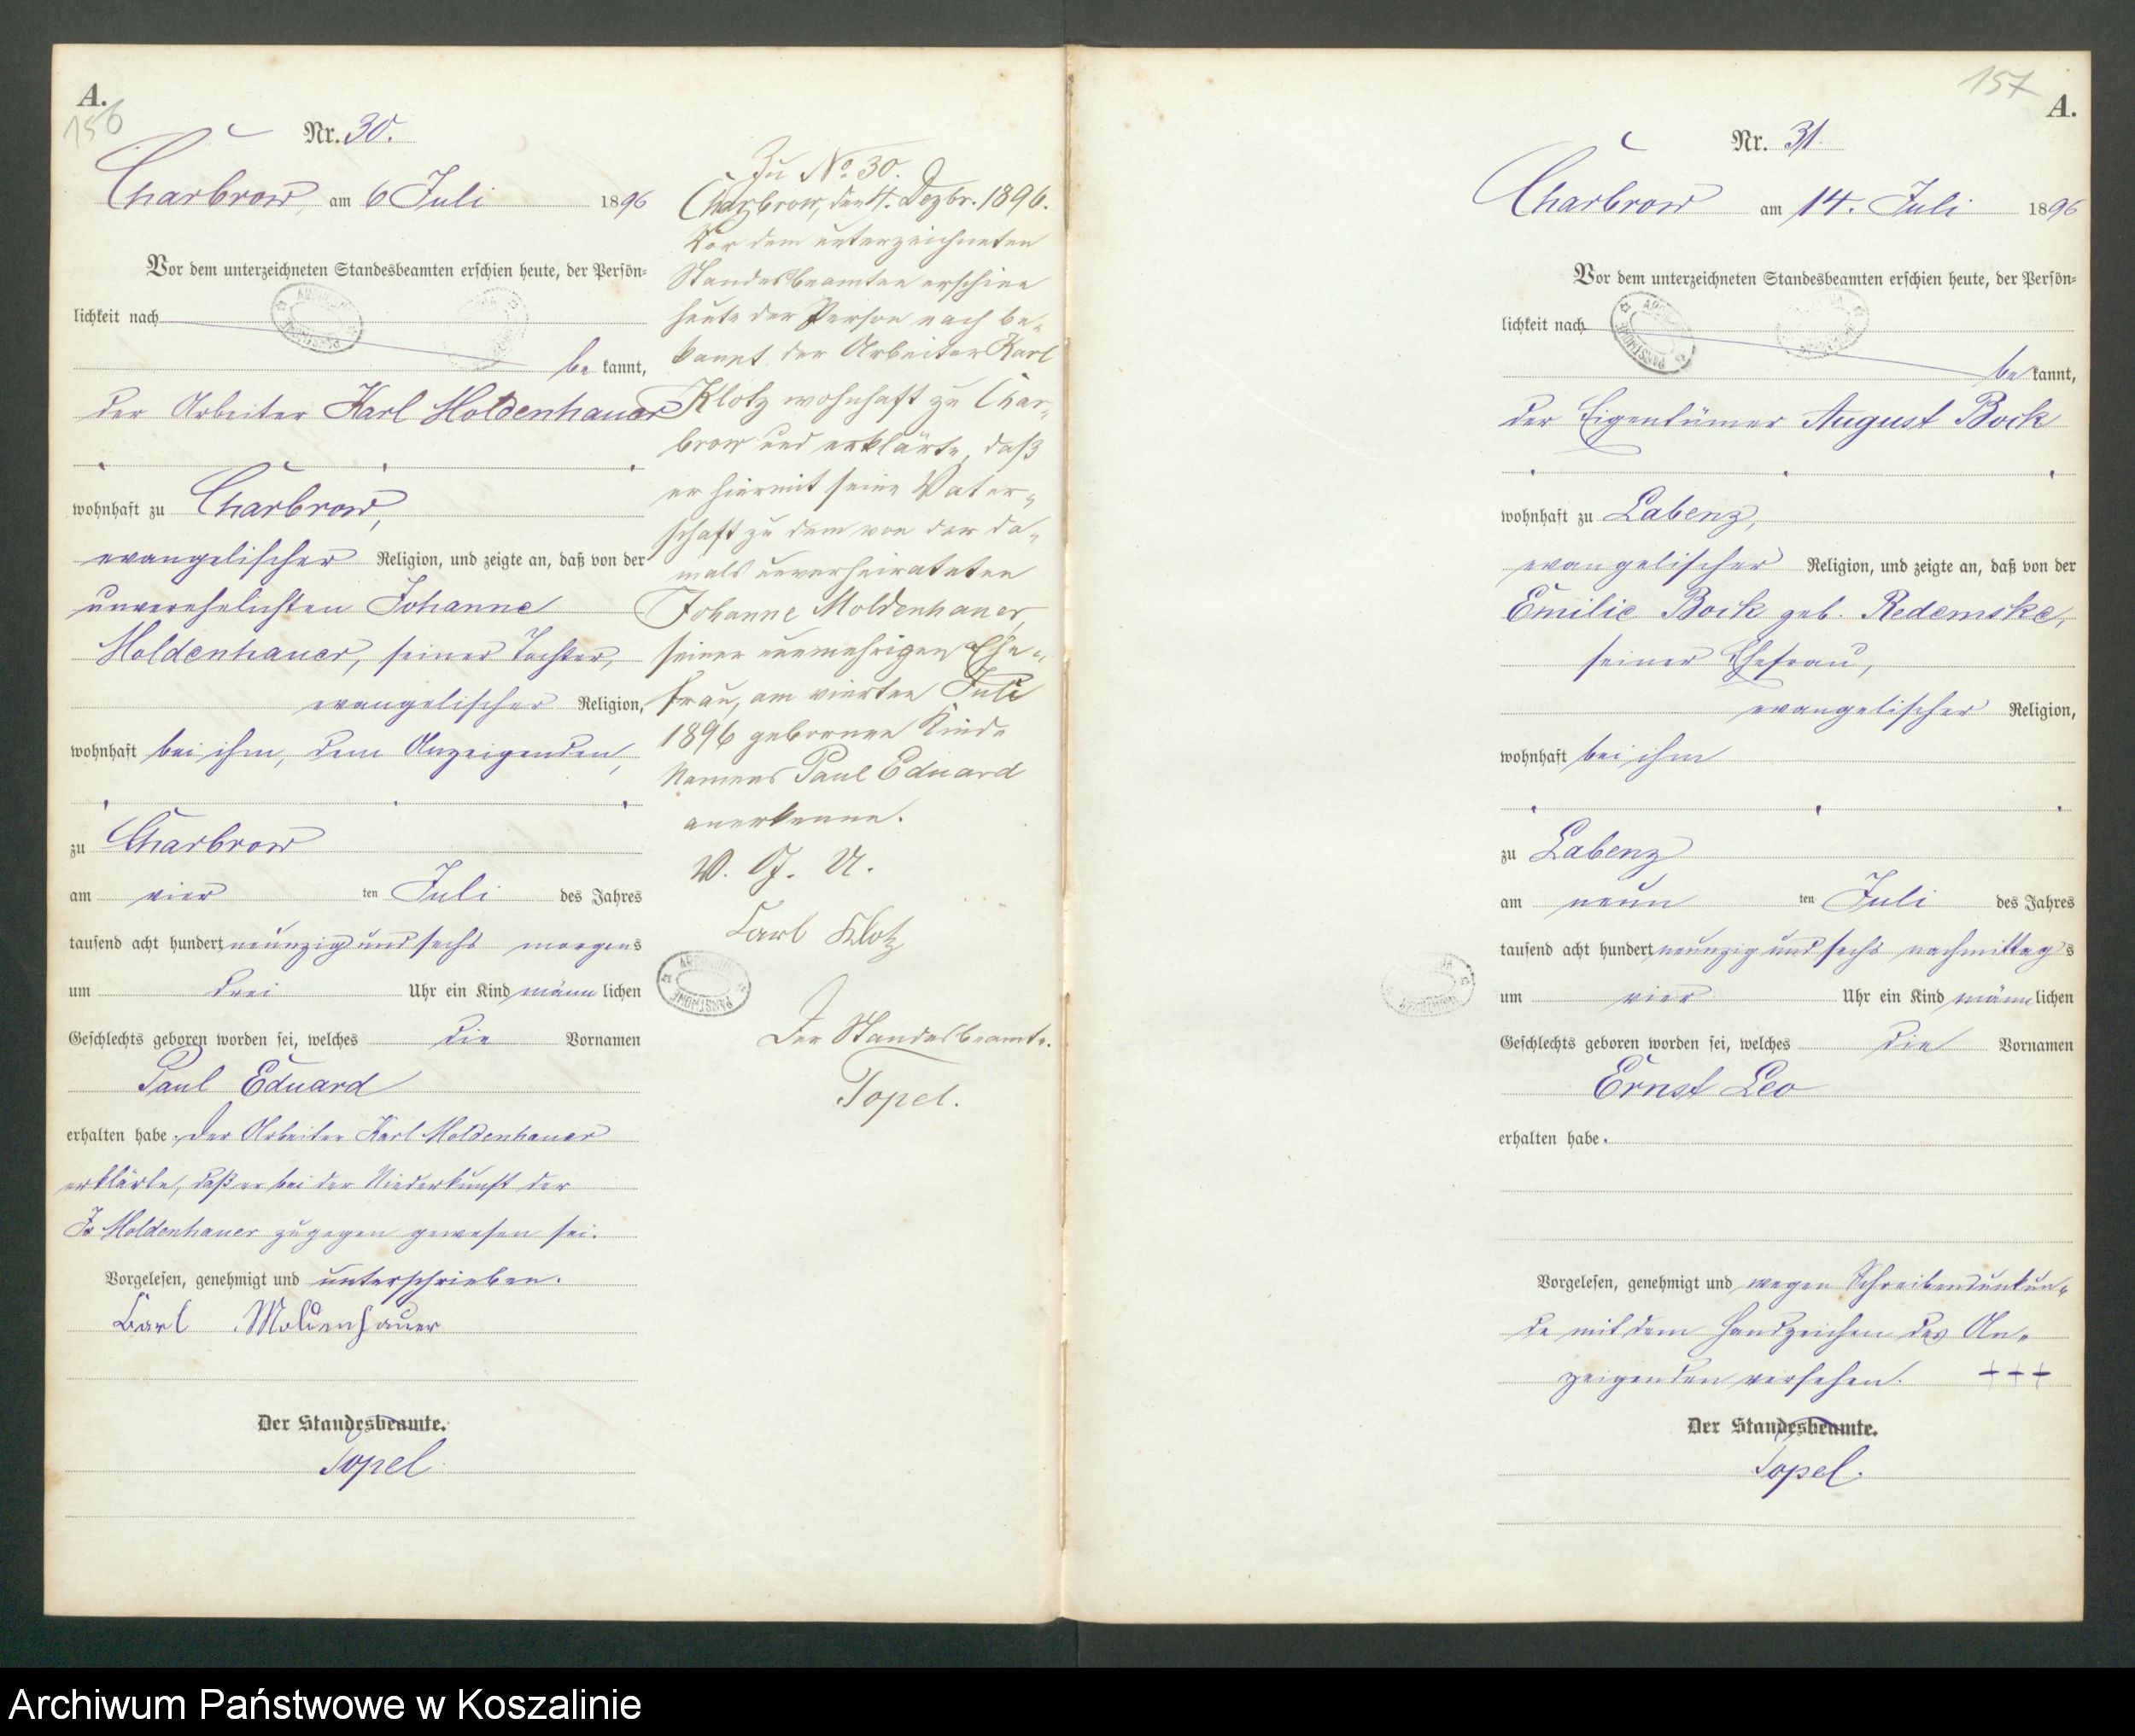 A.
156
Nr. 30.
Charbrow, am 6 Juli 1896
Vor dem unterzeichneten Standesbeamten erschien heute, der Persön=
lichkeit nach
be kannt,
der Arbeiter Karl Moldenhauer
wohnhaft zu Charbrow,
evangelischer Religion, und zeigte an, daß von der
unverehelichten Johanne
Moldenhauer, seiner Tochter,
evangelischer Religion,
wohnhaft bei ihm, dem Anzeigenden,
zu Charbrow
am vier ten Juli des Jahres
tausend acht hundert neunzig und sechs morgens
um drei Uhr ein Kind männ lichen
Geschlechts geboren worden sei, welches die Vornamen
Paul Eduard
erhalten habe. Der Arbeiter Karl Moldenhauer
erklärte, daß er bei der Niederkunft der
Moldenhauer zugegen gewesen sei.
Vorgelesen, genehmigt und unterschrieben.
Carl Moldenhauer
Der Standesbeamte.
Topel
Zu No. 30.
Charbrow, den 4. Dezbr. 1896.
Vor dem unterzeichneten
Standesbeamten erschien
heute der Person nach be=
kannt der Arbeiter Karl
Klotz wohnhaft zu Char=
brow und erklärte, daß
er hiermit seine Vater=
schaft zu dem von der da=
mals unverheirateten
Johanne Moldenhauer,
seiner nunmehrigen Ehe=
frau, am vierten Juli
1896 geborenen Kinde
Namens Paul Eduard
anerkenne.
V. G. U.
Carl Klotz
Der Standesbeamte.
Topel.
157
A.
Nr. 31.
Charbrow am 14. Juli 1896
Vor dem unterzeichneten Standesbeamten erschien heute, der Persön=
lichkeit nach
be kannt,
der Eigentümer August Bock
wohnhaft zu Labenz,
evangelischer Religion, und zeigte an, daß von der
Emilie Bock geb. Redemske,
seiner Ehefrau,
evangelischer Religion,
wohnhaft bei ihm
zu Labenz
am neun ten Juli des Jahres
tausend acht hundert neunzig und sechs nachmittags
um vier Uhr ein Kind männ lichen
Geschlechts geboren worden sei, welches die Vornamen
Ernst Leo
erhalten habe.
Vorgelesen, genehmigt und wegen Schreibensunkun=
de mit dem Handzeichen des An=
zeigenden versehen. +++
Der Standesbeamte.
Topel.
Archiwum Państwowe w Koszalinie